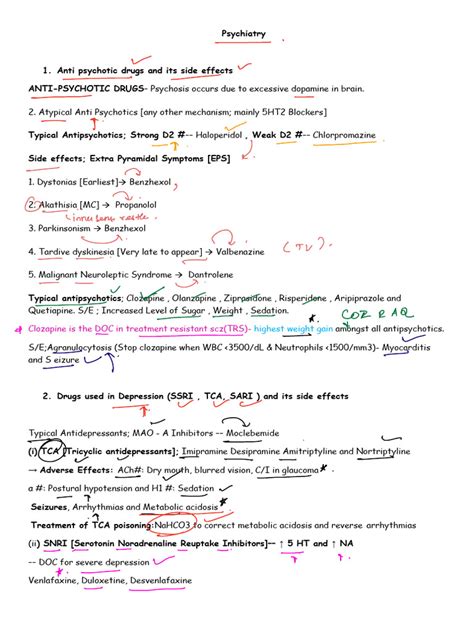 Psychiatry
1. Anti psychotic drugs and its side effects
ANTI-PSYCHOTIC DRUGS- Psychosis occurs due to excessive dopamine in brain.
2. Atypical Anti Psychotics [any other mechanism; mainly 5HT2 Blockers]
Typical Antipsychotics; Strong D2 #-- Haloperidol , Weak D2 #-- Chlorpromazine
Side effects; Extra Pyramidal Symptoms [EPS]
1. Dystonias [Earliest]→ Benzhexol
2. Akathisia [MC] → Propanolol
inner sense restle.
3. Parkinsonism → Benzhexol
4. Tardive dyskinesia [Very late to appear] → Valbenazine (TV).
5. Malignant Neuroleptic Syndrome → Dantrolene
Typical antipsychotics; Clozapine , Olanzapine , Ziprasidone , Risperidone , Aripiprazole and
Quetiapine. S/E ; Increased Level of Sugar , Weight , Sedation. COZ R AQ
Clozapine is the DOC in treatment resistant scz(TRS)- highest weight gain amongst all antipsychotics.
S/E;Agranulocytosis (Stop clozapine when WBC <3500/dL & Neutrophils <1500/mm3)- Myocarditis
and S eizure
2. Drugs used in Depression (SSRI , TCA, SARI ) and its side effects
Typical Antidepressants; MAO - A Inhibitors -- Moclebemide
(i) TCA [Tricyclic antidepressants]; Imipramine Desipramine Amitriptyline and Nortriptyline
→ Adverse Effects: ACh#: Dry mouth, blurred vision, C/I in glaucoma
α #: Postural hypotension and H1 #: Sedation
Seizures, Arrhythmias and Metabolic acidosis
Treatment of TCA poisoning:NaHCO3 to correct metabolic acidosis and reverse arrhythmias
(ii) SNRI [Serotonin Noradrenaline Reuptake Inhibitors]-- ↑ 5 HT and ↑ NA
-- DOC for severe depression
Venlafaxine, Duloxetine, Desvenlafaxine